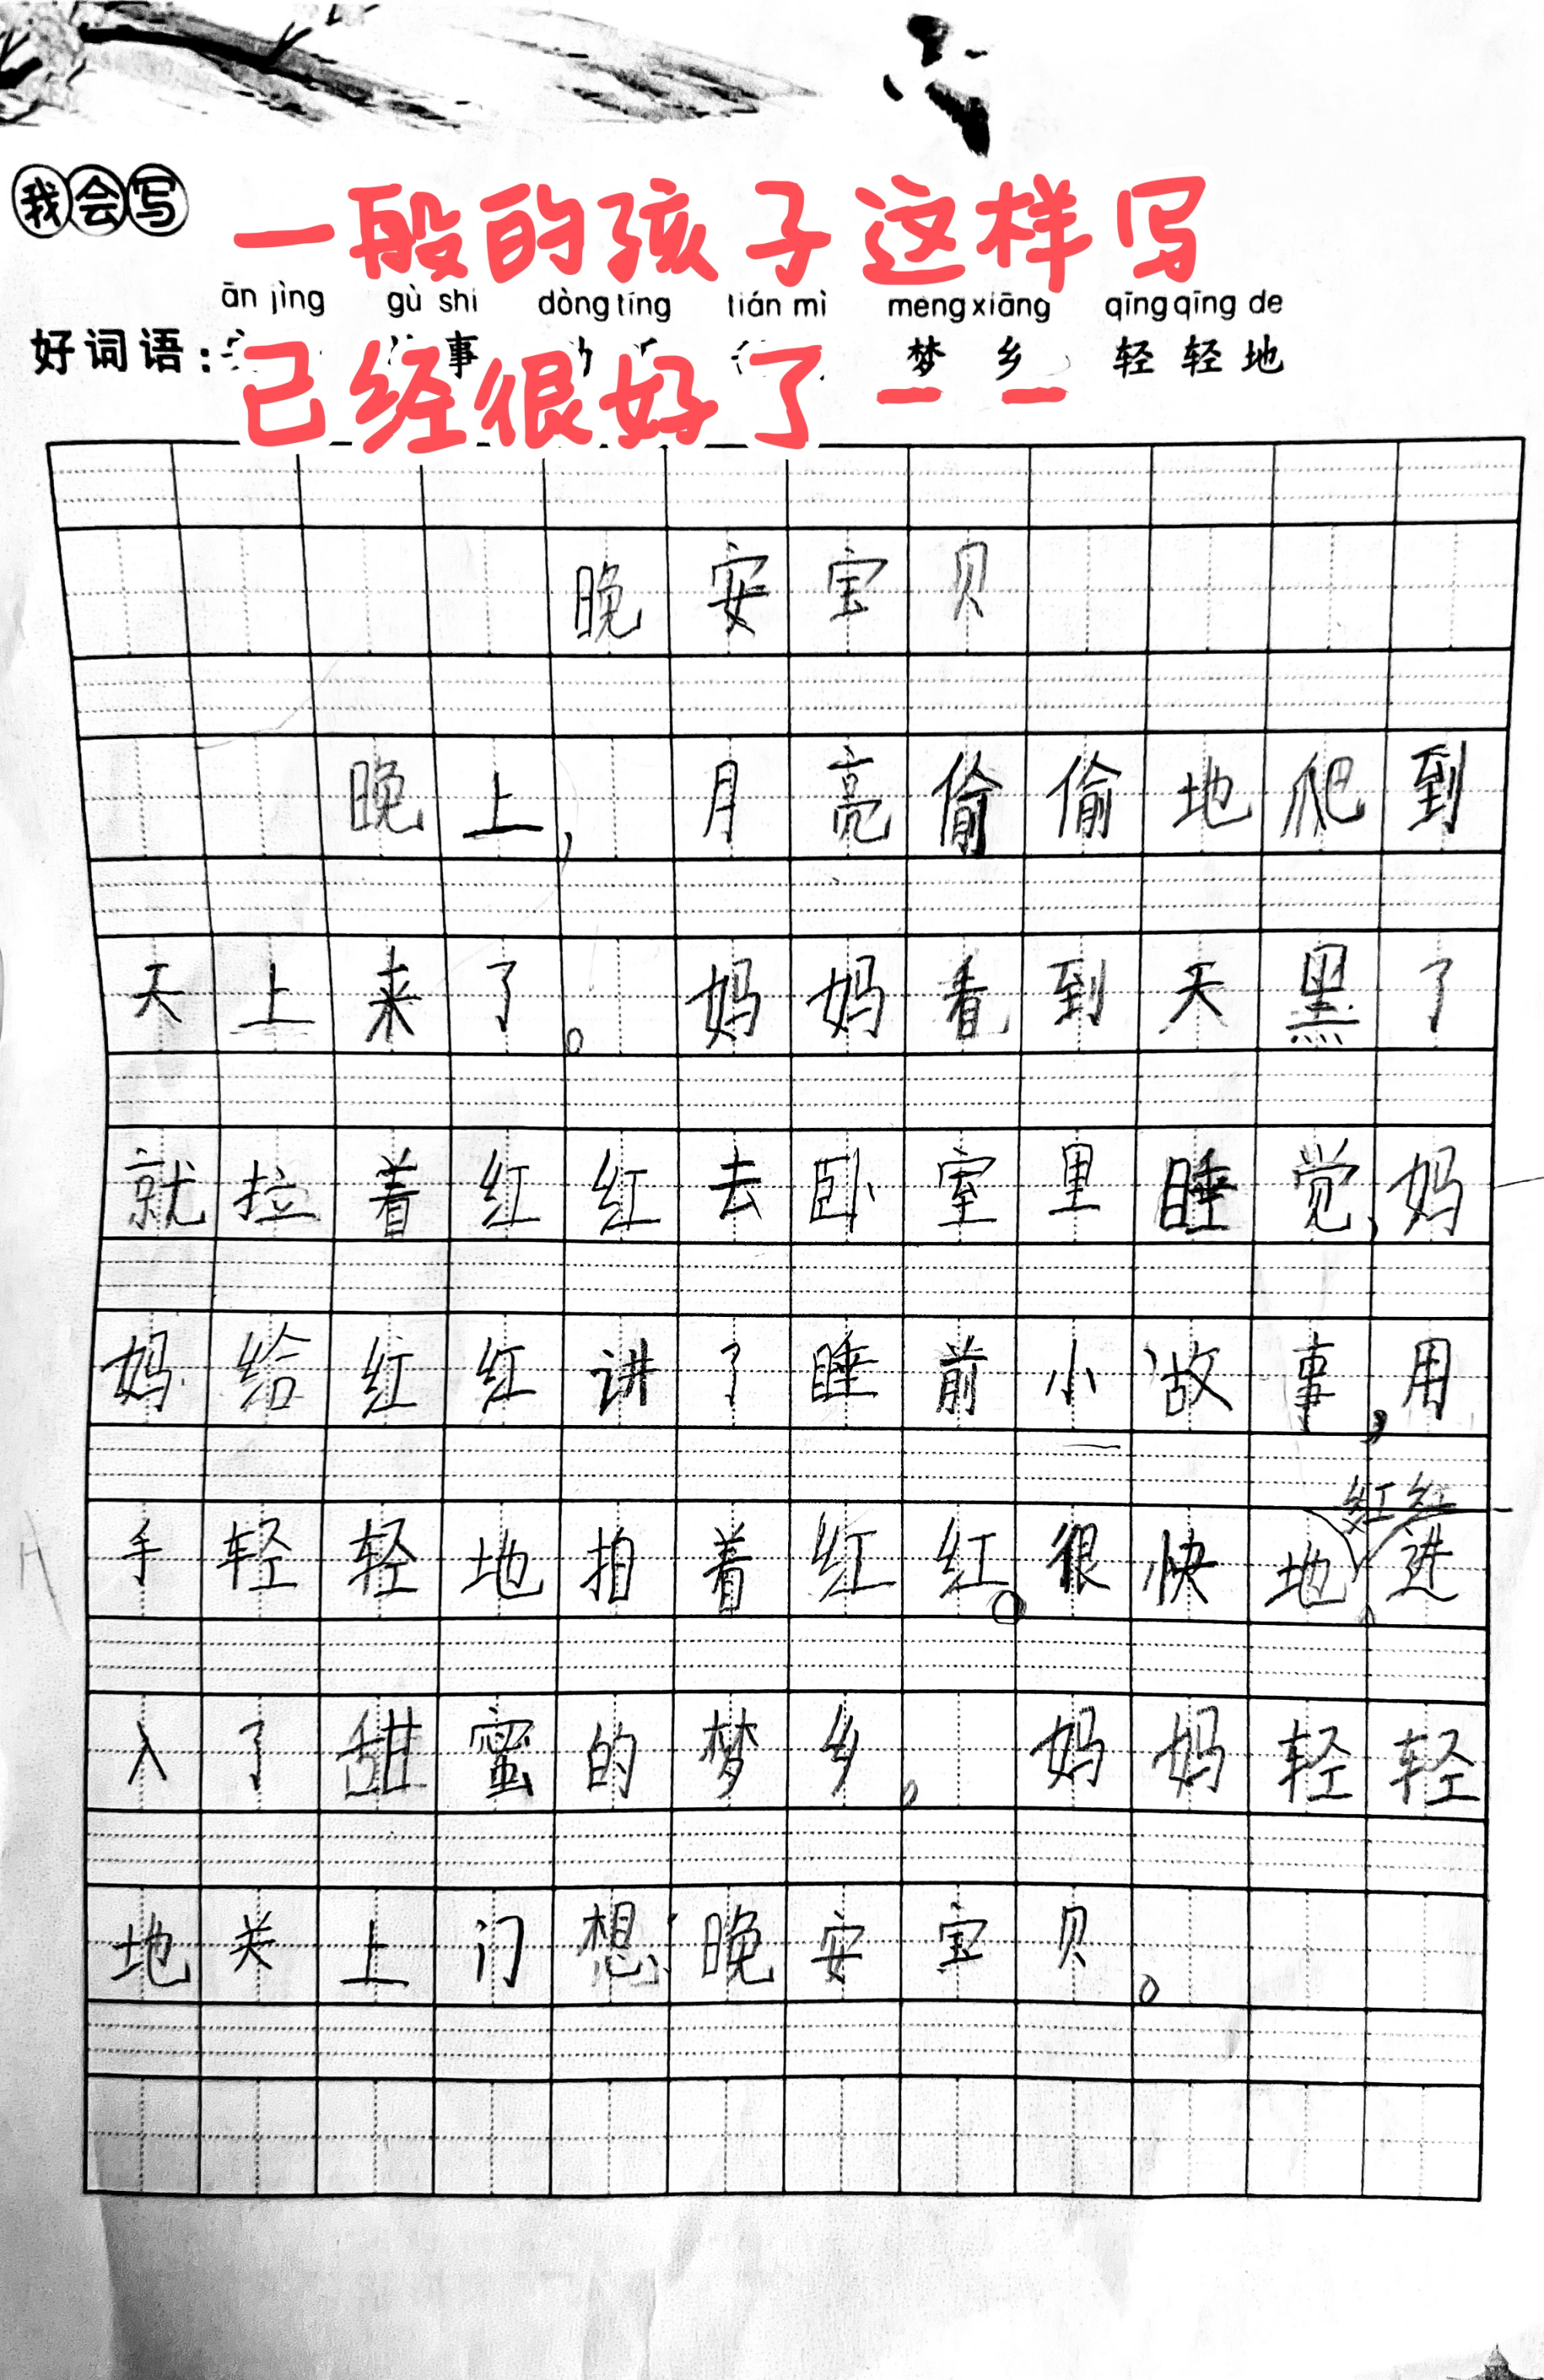 我会写
一般的孩子这样写
ān jìng gù shi dòng tīng tián mì mèng xiāng qīng qīng de
好词语： 事 梦乡 轻轻地
已经很好了
晚安宝贝
晚上，月亮偷偷地爬到
天上来了。妈妈看到天黑了
就拉着红红去卧室里睡觉，妈
妈给红红讲了睡前小故事，用
红红
手轻轻地拍着红红。很快地进
入了甜蜜的梦乡，妈妈轻轻
地关上门想：晚安宝贝。